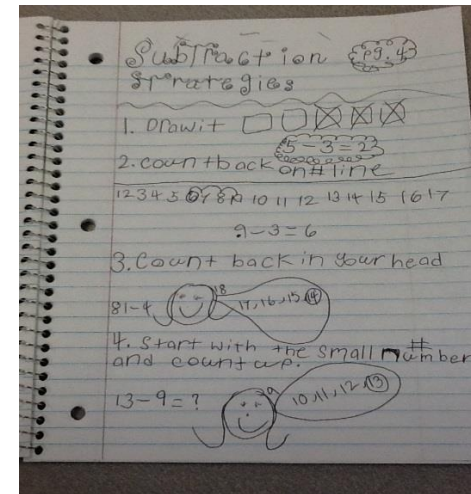 Subtraction pg. 43
strategies
1. Draw it
5-3=2
2. count back on # line
1 2 3 4 5 6 7 8 9 10 11 12 13 14 15 16 17
9-3=6
3. Count back in your head
81-4 18 17, 16, 15, 14
4. Start with the small number #
and count up.
13-9=? 9 10, 11, 12, 13